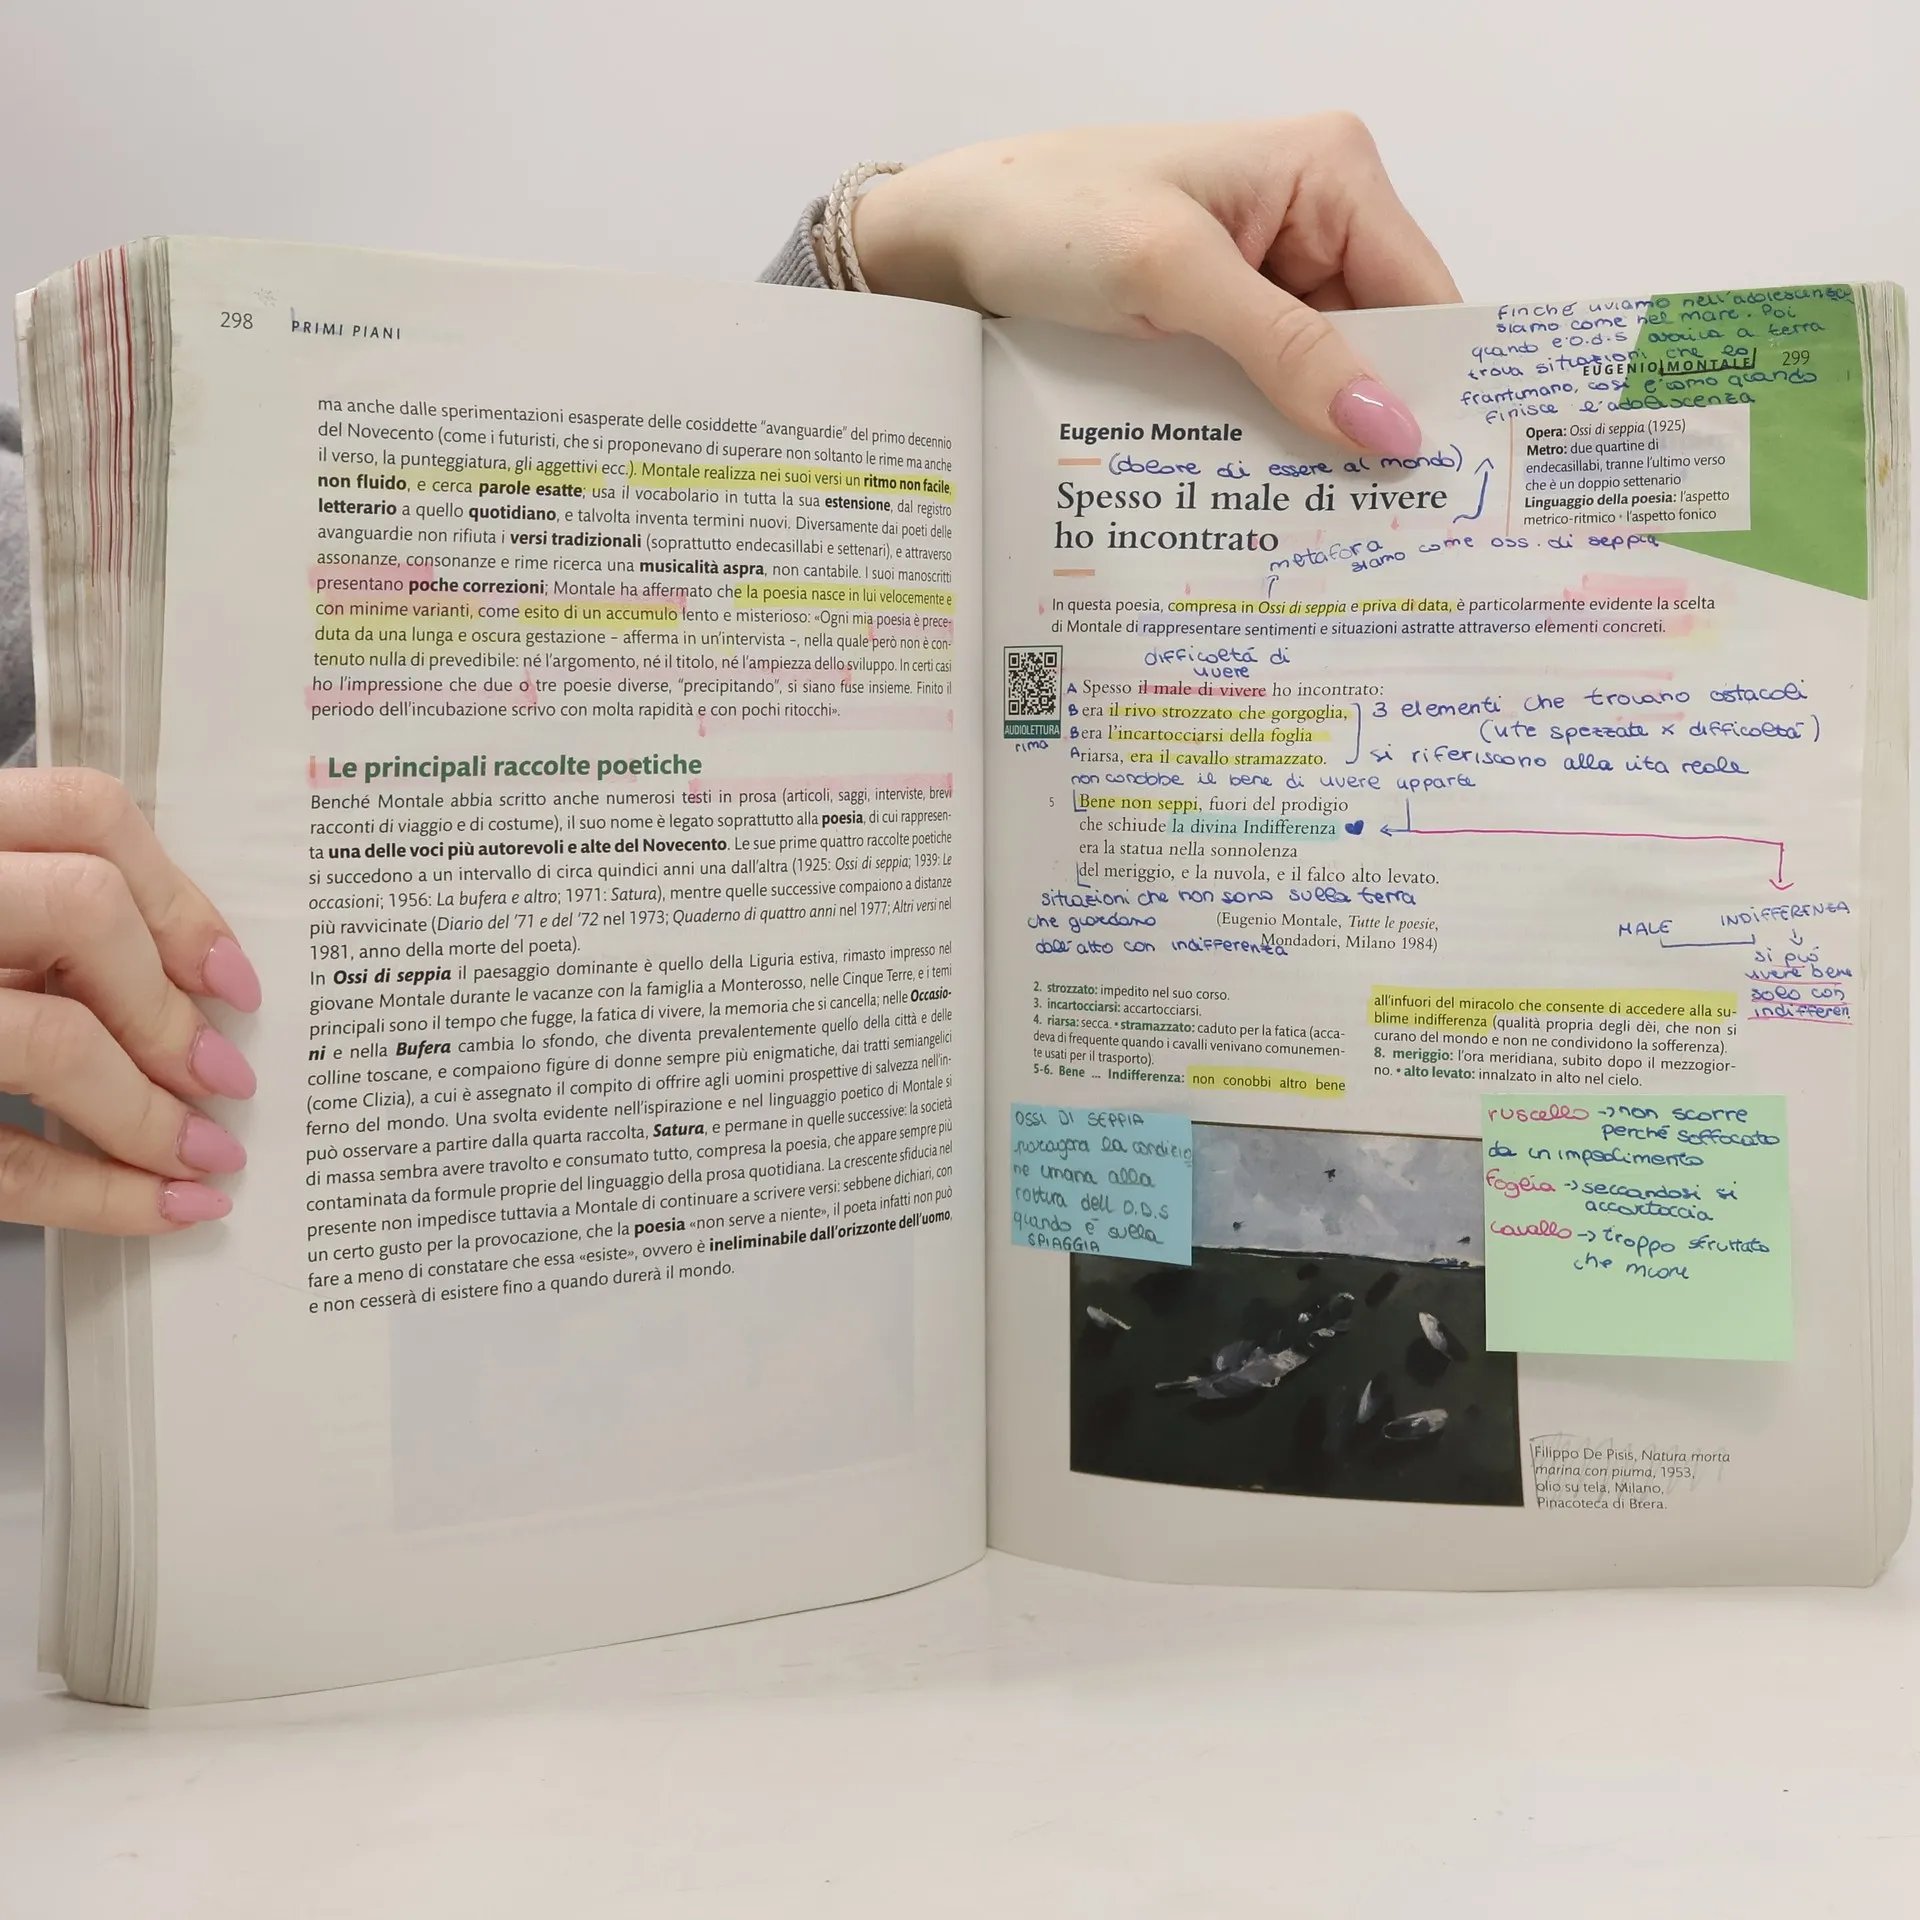 298 PRIMI PIANI
ma anche dalle sperimentazioni esasperate delle cosiddette "avanguardie" del primo decennio
del Novecento (come i futuristi, che si proponevano di superare non soltanto le rime ma anche
il verso, la punteggiatura, gli aggettivi ecc.). Montale realizza nei suoi versi un ritmo non facile,
non fluido, e cerca parole esatte; usa il vocabolario in tutta la sua estensione, dal registro
letterario a quello quotidiano, e talvolta inventa termini nuovi. Diversamente dai poeti delle
avanguardie non rifiuta i versi tradizionali (soprattutto endecasillabi e settenari), e attraverso
assonanze, consonanze e rime ricerca una musicalità aspra, non cantabile. I suoi manoscritti
presentano poche correzioni; Montale ha affermato che la poesia nasce in lui velocemente e
con minime varianti, come esito di un accumulo lento e misterioso: «Ogni mia poesia è prece-
duta da una lunga e oscura gestazione – afferma in un'intervista –, nella quale però non è con-
tenuto nulla di prevedibile: né l'argomento, né il titolo, né l'ampiezza dello sviluppo. In certi casi
ho l'impressione che due o tre poesie diverse, "precipitando", si siano fuse insieme. Finito il
periodo dell'incubazione scrivo con molta rapidità e con pochi ritocchi».
Le principali raccolte poetiche
Benché Montale abbia scritto anche numerosi testi in prosa (articoli, saggi, interviste, brevi
racconti di viaggio e di costume), il suo nome è legato soprattutto alla poesia, di cui rappresen-
ta una delle voci più autorevoli e alte del Novecento. Le sue prime quattro raccolte poetiche
si succedono a un intervallo di circa quindici anni una dall'altra (1925: Ossi di seppia; 1939: Le
occasioni; 1956: La bufera e altro; 1971: Satura), mentre quelle successive compaiono a distanze
più ravvicinate (Diario del '71 e del '72 nel 1973; Quaderno di quattro anni nel 1977; Altri versi nel
1981, anno della morte del poeta).
In Ossi di seppia il paesaggio dominante è quello della Liguria estiva, rimasto impresso nel
giovane Montale durante le vacanze con la famiglia a Monterosso, nelle Cinque Terre, e i temi
principali sono il tempo che fugge, la fatica di vivere, la memoria che si cancella; nelle Occasio-
ni e nella Bufera cambia lo sfondo, che diventa prevalentemente quello della città e delle
colline toscane, e compaiono figure di donne sempre più enigmatiche, dai tratti semiangelici
(come Clizia), a cui è assegnato il compito di offrire agli uomini prospettive di salvezza nell'in-
ferno del mondo. Una svolta evidente nell'ispirazione e nel linguaggio poetico di Montale si
può osservare a partire dalla quarta raccolta, Satura, e permane in quelle successive: la società
di massa sembra avere travolto e consumato tutto, compresa la poesia, che appare sempre più
contaminata da formule proprie del linguaggio della prosa quotidiana. La crescente sfiducia nel
presente non impedisce tuttavia a Montale di continuare a scrivere versi: sebbene dichiari, con
un certo gusto per la provocazione, che la poesia «non serve a niente», il poeta infatti non può
fare a meno di constatare che essa «esiste», ovvero è ineliminabile dall'orizzonte dell'uomo,
e non cesserà di esistere fino a quando durerà il mondo.
Finché viviamo nell'adolescenza
siamo come nel mare. Poi
quando l'O.d.S arriva a terra
trova situazioni che lo
EUGENIO MONTALE 299
frantumano, così è come quando
finisce l'adolescenza
Eugenio Montale
(dolore di essere al mondo)
Spesso il male di vivere
ho incontrato
Opera: Ossi di seppia (1925)
Metro: due quartine di
endecasillabi, tranne l'ultimo verso
che è un doppio settenario
Linguaggio della poesia: l'aspetto
metrico-ritmico • l'aspetto fonico
metafora siamo come oss. di seppia
In questa poesia, compresa in Ossi di seppia e priva di data, è particolarmente evidente la scelta
di Montale di rappresentare sentimenti e situazioni astratte attraverso elementi concreti.
difficoltà di
vivere
AUDIOLETTURA
rima
A Spesso il male di vivere ho incontrato:
B era il rivo strozzato che gorgoglia,
B era l'incartocciarsi della foglia
A riarsa, era il cavallo stramazzato.
3 elementi che trovano ostacoli
(vite spezzate x difficoltà)
si riferiscono alla vita reale
non conobbe il bene di vivere apparte
5 Bene non seppi, fuori del prodigio
che schiude la divina Indifferenza
era la statua nella sonnolenza
del meriggio, e la nuvola, e il falco alto levato.
situazioni che non sono sulla terra
che guardano
dall'alto con indifferenza
(Eugenio Montale, Tutte le poesie,
Mondadori, Milano 1984)
MALE INDIFFERENZA
si può
vivere bene
solo con
indifferen
2. strozzato: impedito nel suo corso.
3. incartocciarsi: accartocciarsi.
4. riarsa: secca. • stramazzato: caduto per la fatica (acca-
deva di frequente quando i cavalli venivano comunemen-
te usati per il trasporto).
5-6. Bene ... Indifferenza: non conobbi altro bene
all'infuori del miracolo che consente di accedere alla su-
blime indifferenza (qualità propria degli dèi, che non si
curano del mondo e non ne condividono la sofferenza).
8. meriggio: l'ora meridiana, subito dopo il mezzogior-
no. • alto levato: innalzato in alto nel cielo.
OSSI DI SEPPIA
paragona la condizio
ne umana alla
rottura dell O.D.S
quando è sulla
SPIAGGIA
ruscello -> non scorre
perché soffocato
da un impedimento
foglia -> seccandosi si
accartoccia
cavallo -> troppo sfruttato
che muore
Filippo De Pisis, Natura morta
marina con piuma, 1953,
olio su tela, Milano,
Pinacoteca di Brera.